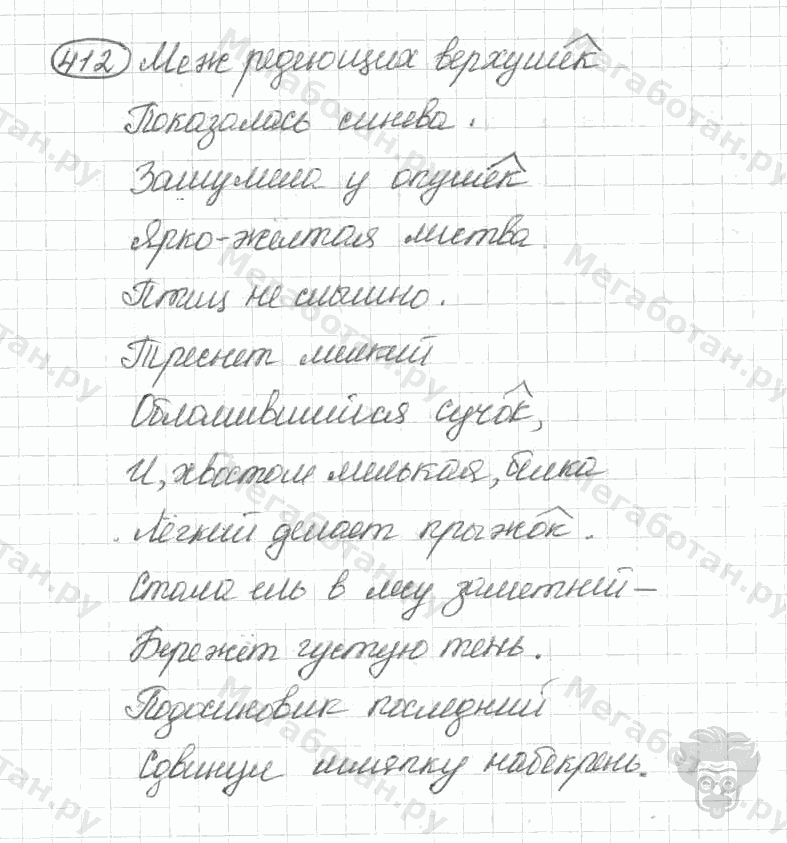 412 Меж редеющих верхушек
Показалась синева.
Зашумела у опушек
Ярко-жёлтая листва.
Птиц не слышно.
Треснет мелкий
Обломившийся сучок,
И, хвостом мелькая, белка
Лёгкий делает прыжок.
Стала ель в лесу заметней –
Бережёт густую тень.
Подосиновик последний
Сдвинул шляпку набекрень.
Мегаботан.ру